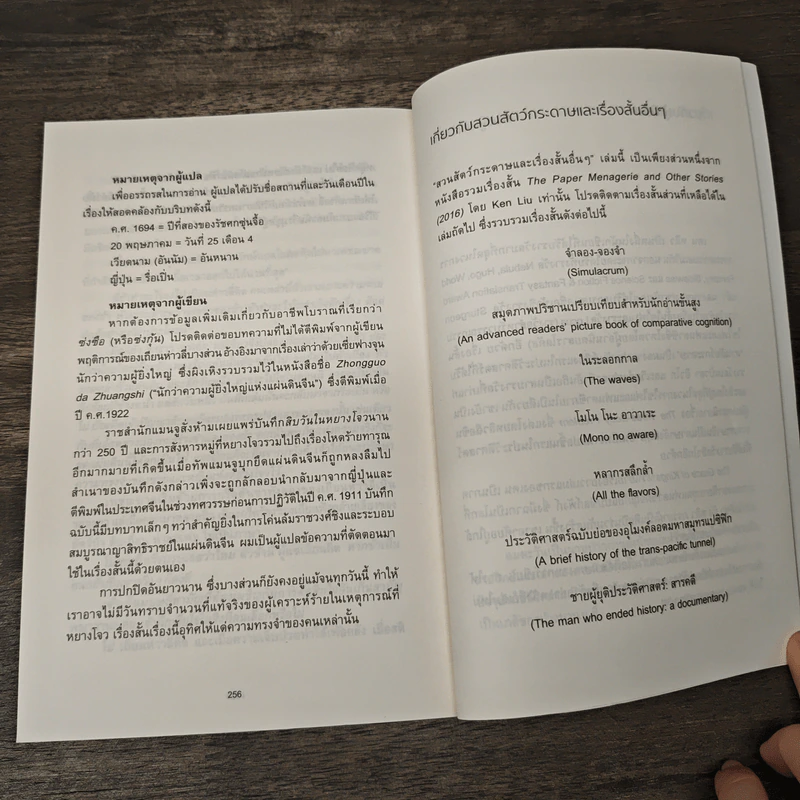 หมายเหตุจากผู้แปล
เพื่ออรรถรสในการอ่าน ผู้แปลได้ปรับชื่อสถานที่และวันเดือนปีใน
เรื่องให้สอดคล้องกับบริบทดังนี้
ค.ศ. 1694 = ปีที่สองของรัชศกซุ่นจื้อ
20 พฤษภาคม = วันที่ 25 เดือน 4
เวียดนาม (อันนัม) = อันหนาน
ญี่ปุ่น = รื่อเปิ่น
หมายเหตุจากผู้เขียน
หากต้องการข้อมูลเพิ่มเติมเกี่ยวกับอาชีพโบราณที่เรียกว่า
ซ่งซือ (หรือซ่งกุ้น) โปรดติดต่อขอบทความที่ไม่ได้ตีพิมพ์จากผู้เขียน
พฤติการณ์ของเถียนห่าวลี่บางส่วน อ้างอิงมาจากเรื่องเล่าว่าด้วยเซี่ยฟางจุน
นักว่าความผู้ยิ่งใหญ่ ซึ่งผิงเหิงรวบรวมไว้ในหนังสือชื่อ Zhongguo
da Zhuangshi ("นักว่าความผู้ยิ่งใหญ่แห่งแผ่นดินจีน") ซึ่งตีพิมพ์เมื่อ
ปี ค.ศ.1922
ราชสำนักแมนจูสั่งห้ามเผยแพร่บันทึกสิบวันในหยางโจวนาน
กว่า 250 ปี และการสังหารหมู่ที่หยางโจวรวมไปถึงเรื่องโหดร้ายทารุณ
อีกมากมายที่เกิดขึ้นเมื่อทัพแมนจูบุกยึดแผ่นดินจีนก็ถูกหลงลืมไป
สำเนาของบันทึกดังกล่าวเพิ่งจะถูกลักลอบนำกลับมาจากญี่ปุ่นและ
ตีพิมพ์ในประเทศจีนในช่วงทศวรรษก่อนการปฏิวัติในปี ค.ศ. 1911 บันทึก
ฉบับนี้มีบทบาทเล็กๆ ทว่าสำคัญยิ่งในการโค่นล้มราชวงศ์ชิงและระบอบ
สมบูรณาญาสิทธิราชย์ในแผ่นดินจีน ผมเป็นผู้แปลข้อความที่ตัดตอนมา
ใช้ในเรื่องสั้นนี้ด้วยตนเอง
การปกปิดอันยาวนาน ซึ่งบางส่วนก็ยังคงอยู่แม้จนทุกวันนี้ ทำให้
เราอาจไม่มีวันทราบจำนวนที่แท้จริงของผู้เคราะห์ร้ายในเหตุการณ์ที่
หยางโจว เรื่องสั้นเรื่องนี้อุทิศให้แด่ความทรงจำของคนเหล่านั้น
256
เกี่ยวกับสวนสัตว์กระดาษและเรื่องสั้นอื่นๆ
"สวนสัตว์กระดาษและเรื่องสั้นอื่นๆ" เล่มนี้ เป็นเพียงส่วนหนึ่งจาก
หนังสือรวมเรื่องสั้น The Paper Menagerie and Other Stories
(2016) โดย Ken Liu เท่านั้น โปรดติดตามเรื่องสั้นส่วนที่เหลือได้ใน
เล่มถัดไป ซึ่งรวบรวมเรื่องสั้นดังต่อไปนี้
จำลอง-จองจำ
(Simulacrum)
สมุดภาพปริชานเปรียบเทียบสำหรับนักอ่านขั้นสูง
(An advanced readers' picture book of comparative cognition)
ในระลอกกาล
(The waves)
โมโน โนะ อาวาเระ
(Mono no aware)
หลากรสลึกล้ำ
(All the flavors)
ประวัติศาสตร์ฉบับย่อของอุโมงค์ลอดมหาสมุทรแปซิฟิก
(A brief history of the trans-pacific tunnel)
ชายผู้ยุติประวัติศาสตร์: สารคดี
(The man who ended history: a documentary)